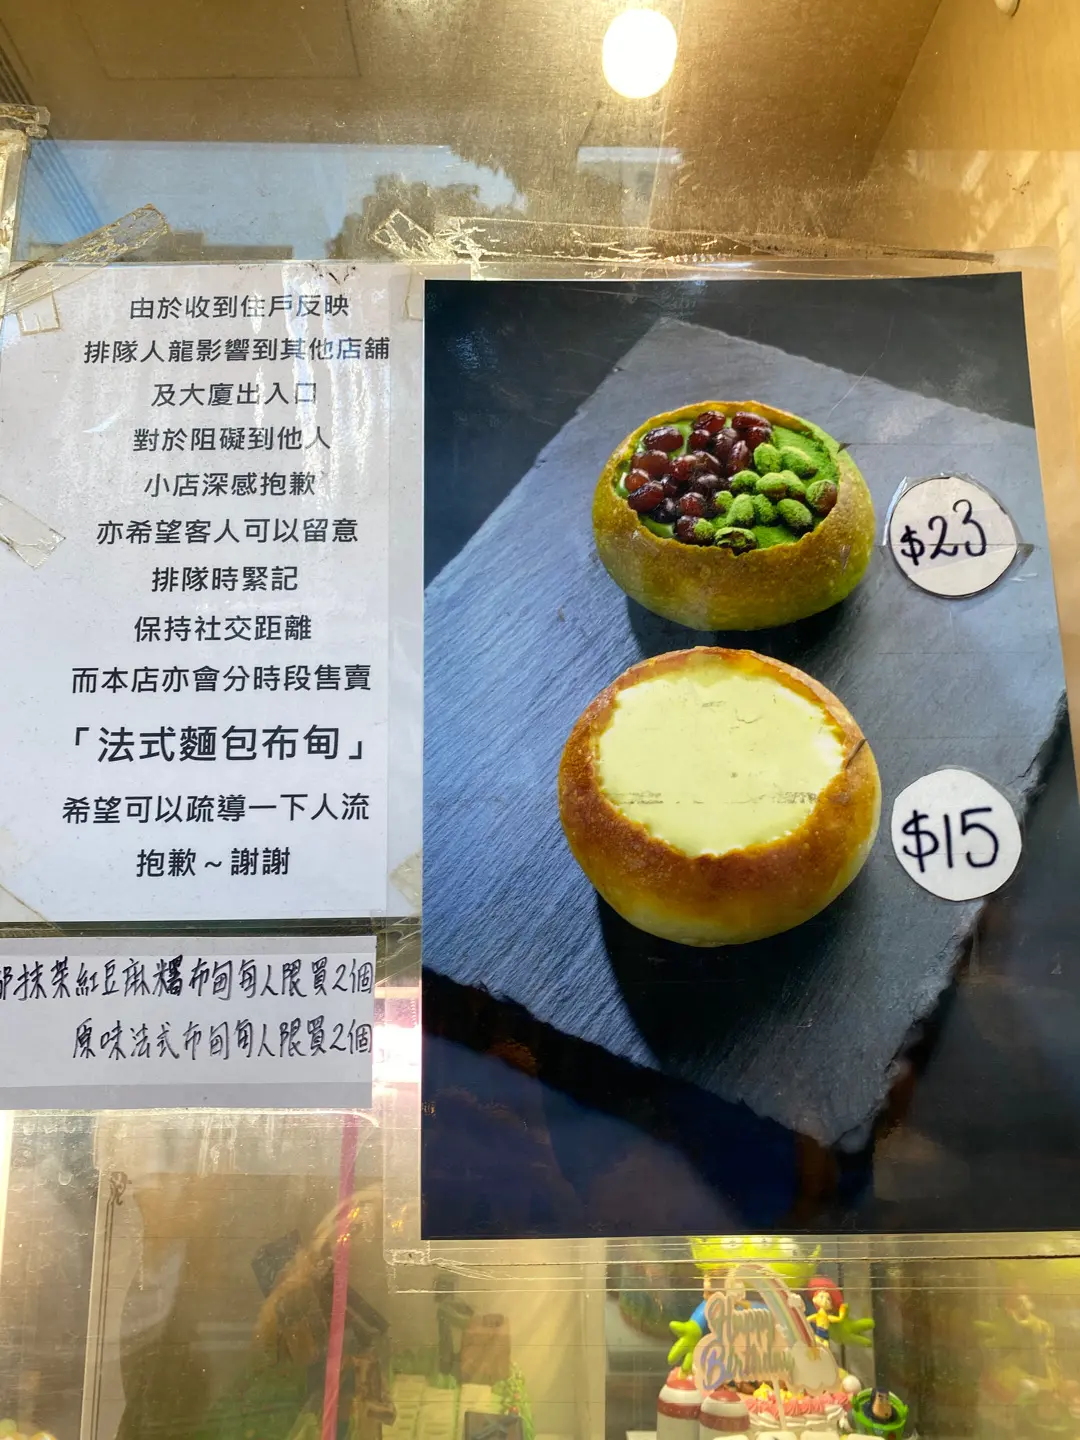 由於收到住戶反映
排隊人龍影響到其他店舖
及大廈出入口
對於阻礙到他人
小店深感抱歉
亦希望客人可以留意
排隊時緊記
保持社交距離
而本店亦會分時段售賣
「法式麵包布甸」
希望可以疏導一下人流
抱歉～謝謝
抹茶紅豆麻糬布甸每人限買2個
原味法式布甸每人限買2個
$23
$15
Happy
Birthday